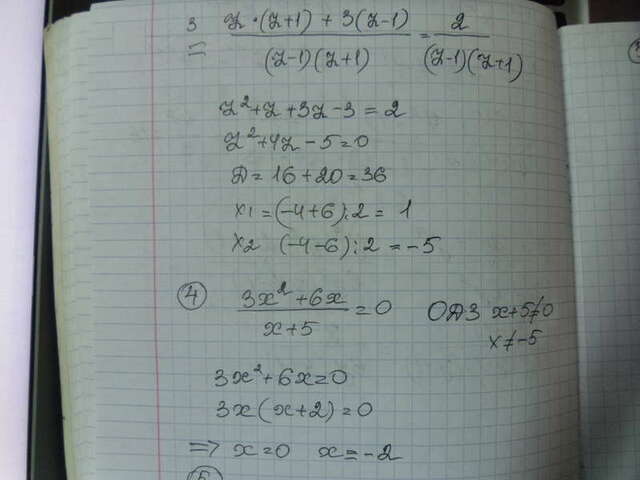 3 = (z·(z+1) + 3(z-1))/((z-1)(z+1)) = 2/((z-1)(z+1))
z²+z+3z-3=2
z²+4z-5=0
Д=16+20=36
x1=(-4+6):2=1
x2 (-4-6):2=-5
④ (3x²+6x)/(x+5)=0 ОДЗ x+5≠0
x≠-5
3x²+6x=0
3x(x+2)=0
=> x=0 x=-2
⑤